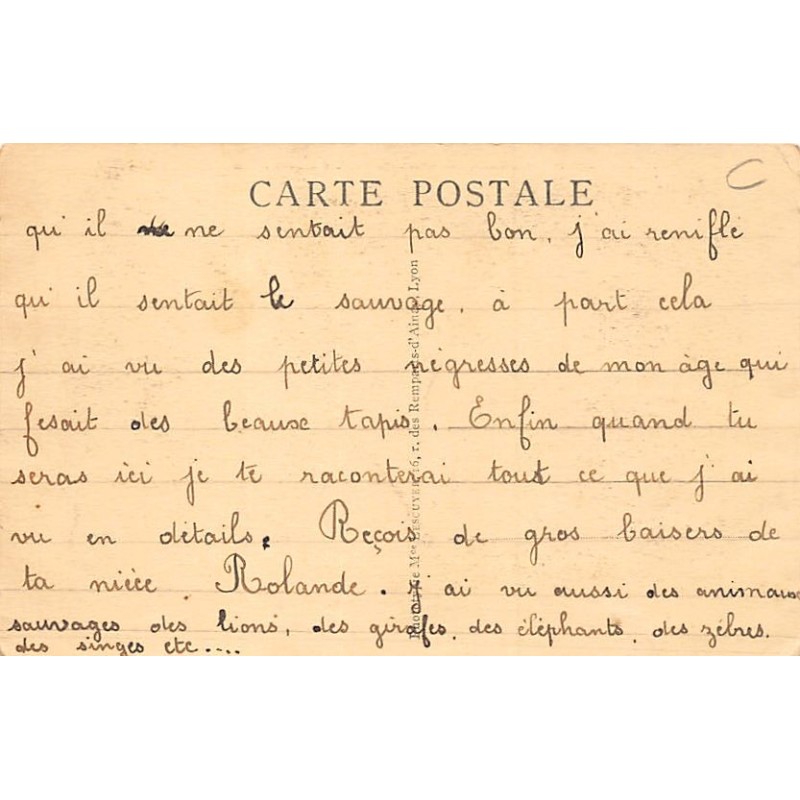 CARTE POSTALE
qu'il ne sentait pas bon, j'ai reniflé
qu'il sentait le sauvage. à part cela
j'ai vu des petites négresses de mon âge qui
fesait des beaux tapis. Enfin quand tu
seras ici je te raconterai tout ce que j'ai
vu en détails. Reçois de gros baisers de
ta nièce. Rolande. J'ai vu aussi des animaux
sauvages des lions, des girafes, des éléphants, des zèbres.
des singes etc....
r. des Remparts-d'Ainay Lyon